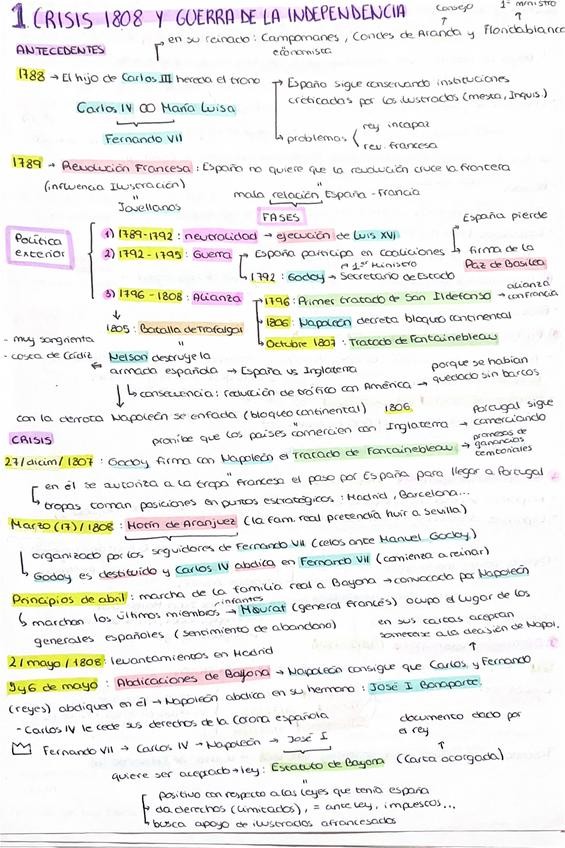 1. CRISIS 1808 Y GUERRA DE LA INDEPENDENCIA
Consejo 1º ministro
ANTECEDENTES
en su reinado: Campomanes, Condes de Aranda y Floridablanca
economista
1788 → El hijo de Carlos III hereda el trono
España sigue conservando instituciones
criticadas por los ilustrados (mesta, Inquis.)
Carlos IV ∞ María Luisa
Fernando VII
problemas
rey incapaz
rev. francesa
1789 → Revolución Francesa: España no quiere que la revolución cruce la frontera
(influencia Ilustración)
Jovellanos
mala relación España - Francia
FASES
Política
exterior
1) 1789-1792: neutralidad → ejecución de Luis XVI
España pierde
2) 1792-1795: Guerra
España participa en coaliciones
firma de la
Paz de Basilea
1er Ministro
1792: Godoy → Secretario de Estado
3) 1796-1808: Alianza
1796: Primer tratado de San Ildefonso → alianza
con Francia
1806: Napoleón decreta bloqueo continental
Octubre 1807: Tratado de Fontainebleau
1805: Batalla de Trafalgar
- muy sangrienta
- costa de Cádiz
Nelson destruye la
armada española → España vs Inglaterra
consecuencia: reducción de tráfico con América →
porque se habían
quedado sin barcos
con la derrota Napoleón se enfada (bloqueo continental) 1806
CRISIS
prohíbe que los países comercien con Inglaterra →
Portugal sigue
comerciando
27/dicim/1807: Godoy firma con Napoleón el Tratado de Fontainebleau →
promesas de
ganancias
territoriales
en él se autoriza a la tropa francesa el paso por España para llegar a Portugal
tropas toman posiciones en puntos estratégicos: Madrid, Barcelona...
Marzo (17)/1808: Motín de Aranjuez (la fam. real pretendía huir a Sevilla)
organizado por los seguidores de Fernando VII (celos ante Manuel Godoy)
Godoy es destituido y Carlos IV abdica en Fernando VII (comienza a reinar)
Principios de abril: marcha de la familia real a Bayona → convocada por Napoleón
infantes
marchan los últimos miembros → Mourat (general francés) ocupo el lugar de los
generales españoles (sentimiento de abandono)
en sus cartas aceptan
someterse a la decisión de Napol.
2/mayo/1808: levantamientos en Madrid
5 y 6 de mayo: Abdicaciones de Bayona → Napoleón consigue que Carlos y Fernando
(reyes) abdiquen en él → Napoleón abdica en su hermano: José I Bonaparte.
- Carlos IV le cede sus derechos de la Corona española
Fernando VII → Carlos IV → Napoleón → José I
documento dado por
el rey
quiere ser aceptado → ley: Estatuto de Bayona (Carta otorgada)
positivo con respecto a las leyes que tenía españa
da derechos (limitados), = ante ley, impuestos...
busca apoyo de ilustrados afrancesados